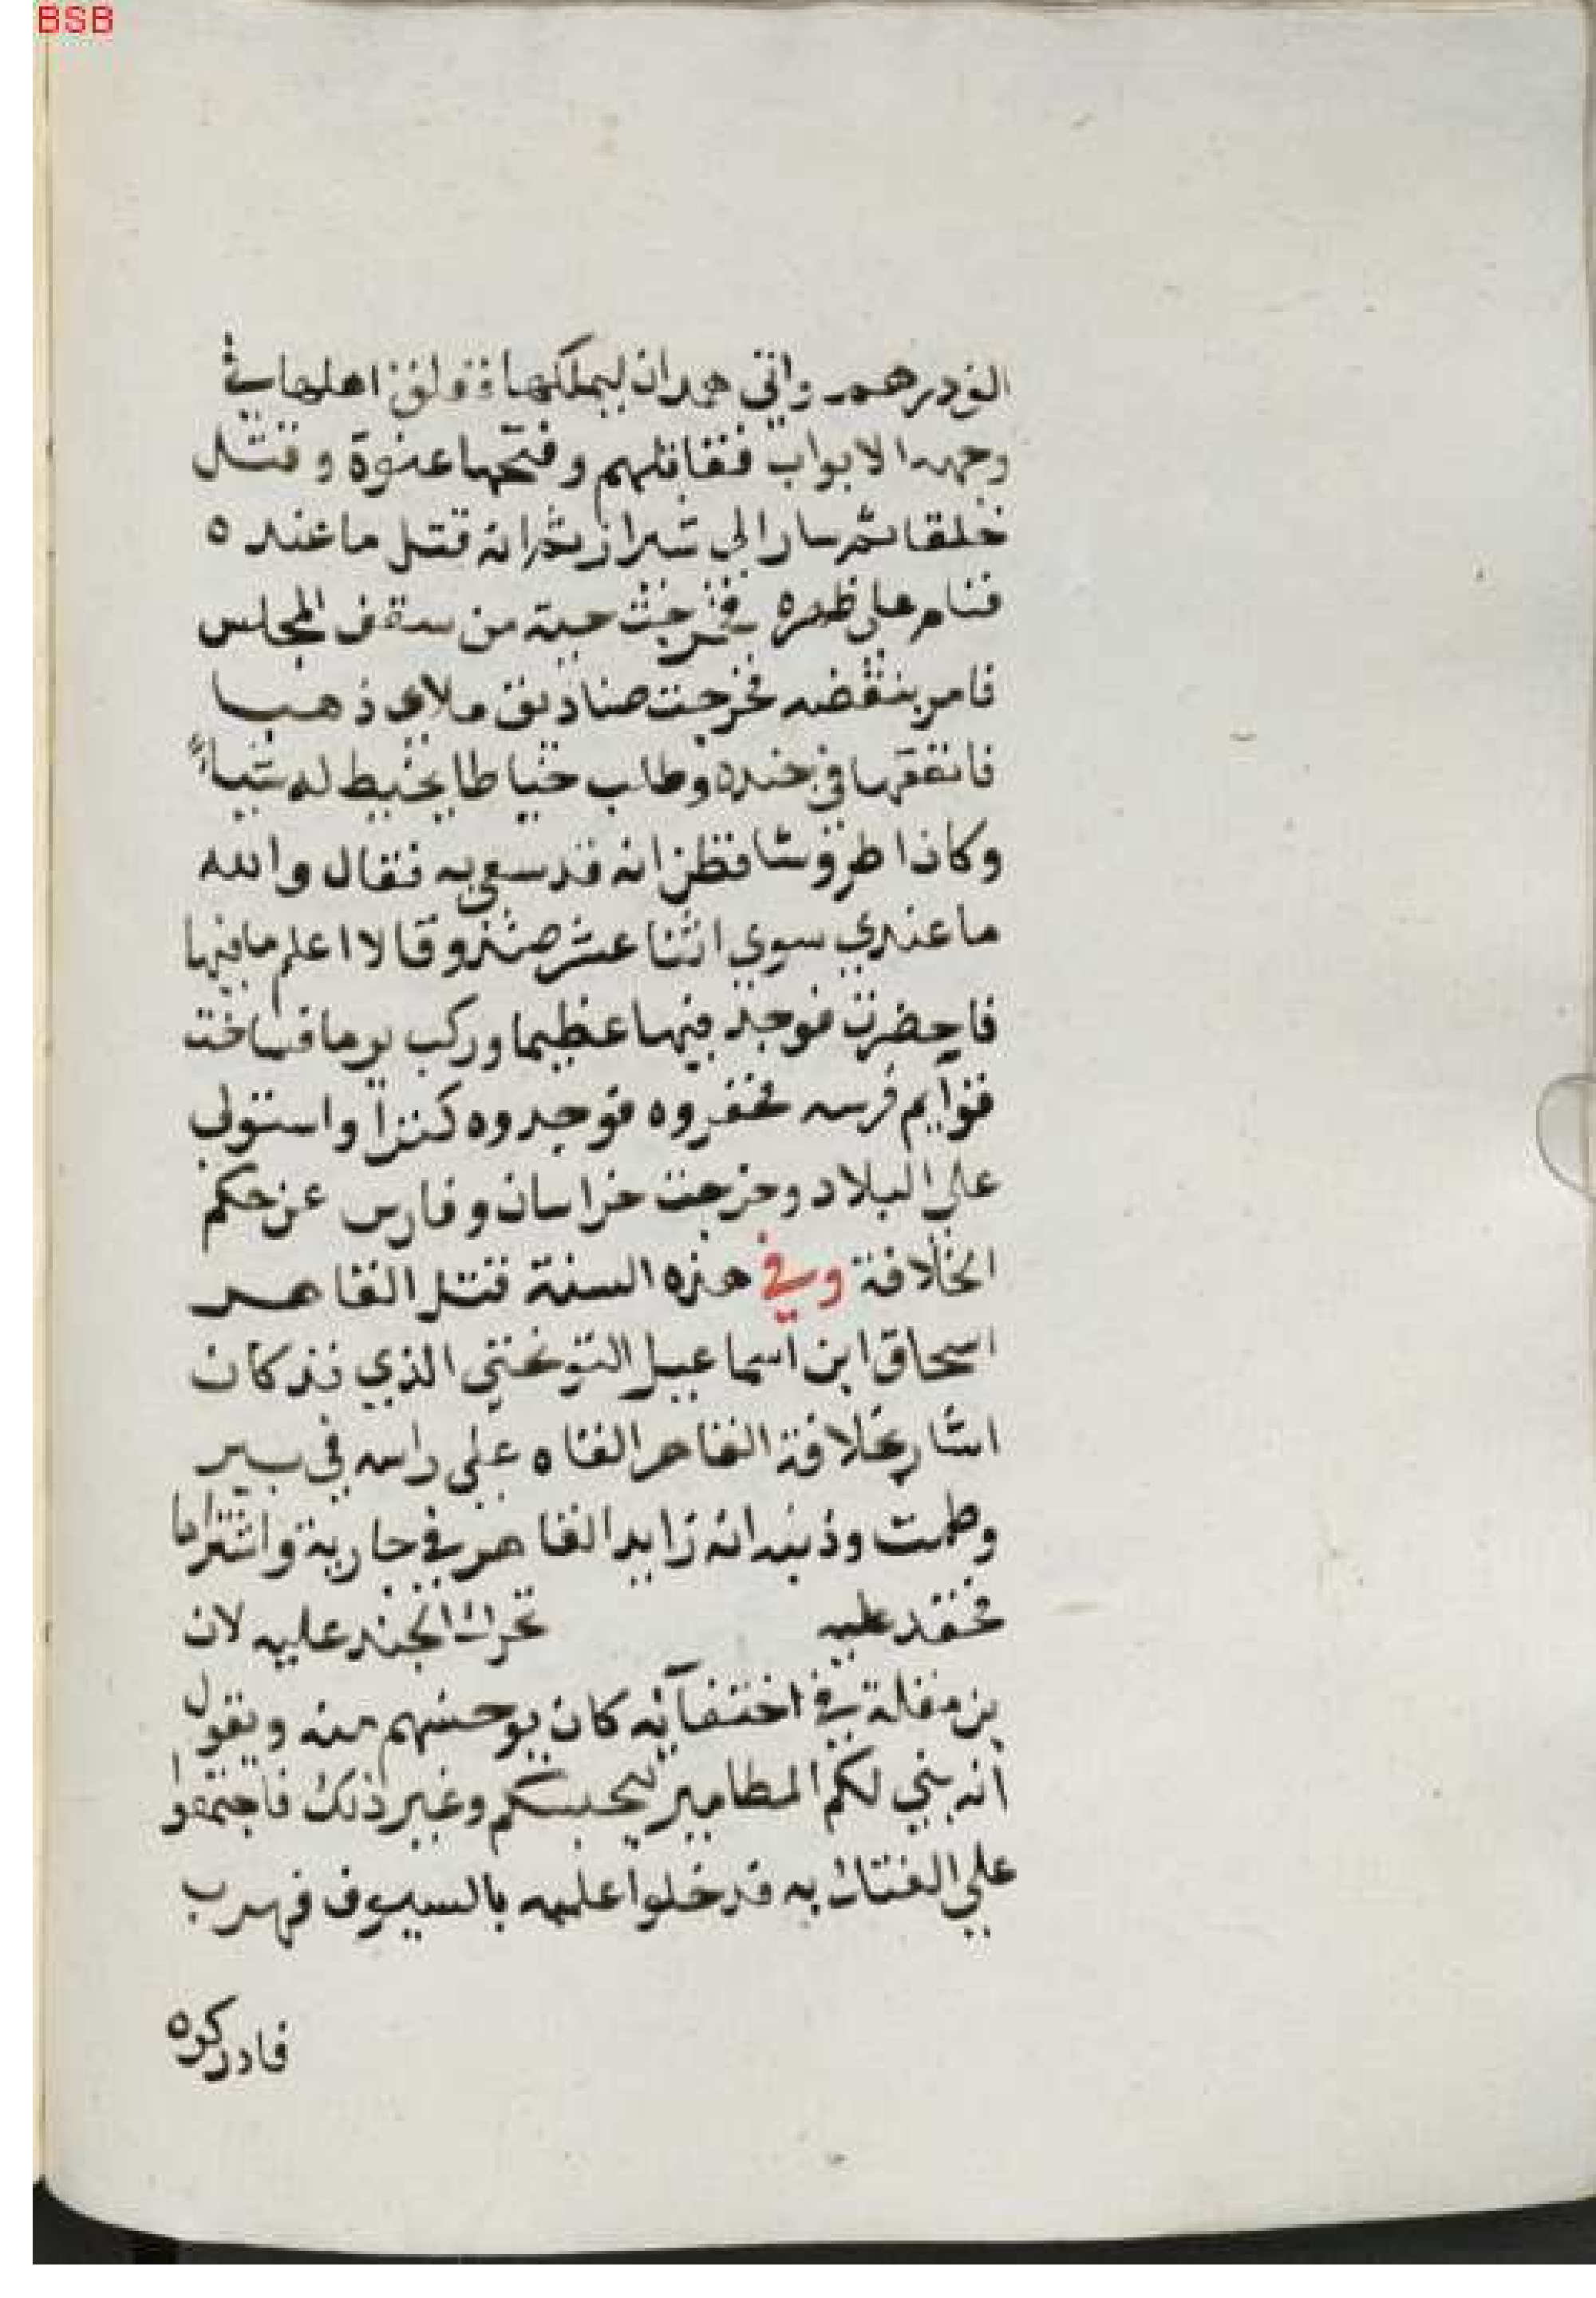 BSB
الف درهم واتى همدان ليملكها فغلق اهلها في
وجهه الابواب فقاتلهم وفتحها عنوة وقتل
خلقا ثم سار الي شيراز ثم انه قتل ما عنده
فنام علي ظهره فخرجت حية من سقف المجلس
فامر بنقضه فخرجت صناديق ملاي ذهبا
فانفقها في جنده وطلب خياطا يخيط له شيأً
وكان اطروشا فظن انه قد سعي به فقال والله
ما عندي سوي اثنا عشر صندوقا لا اعلم ما فيها
فاحضرت فوجد فيها عظيما وركب يوما فساخت
قوآيم فرسه فحفروه فوجدوه كنزاً واستولي
علي البلاد وخرجت خراسان وفارس عن حكم
الخلافة وفي هذه السنة قتل القاهر
اسحاق ابن اسماعيل النوبختي الذي قد كان
اشار بخلافة القاهر القاه علي راسه في بير
وطمت وذنبه انه زايد القاهر في جارية واشتراها
فحقد عليه تحرك الجند عليه لان
بن مقلة في اختفآيه كان يوحشهم منه ويقول
انه بني لكم المطامير ليحبسكم وغير ذلك فاجتمعوا
علي الفتك به فدخلوا عليه بالسيوف فهرب
فادركوه